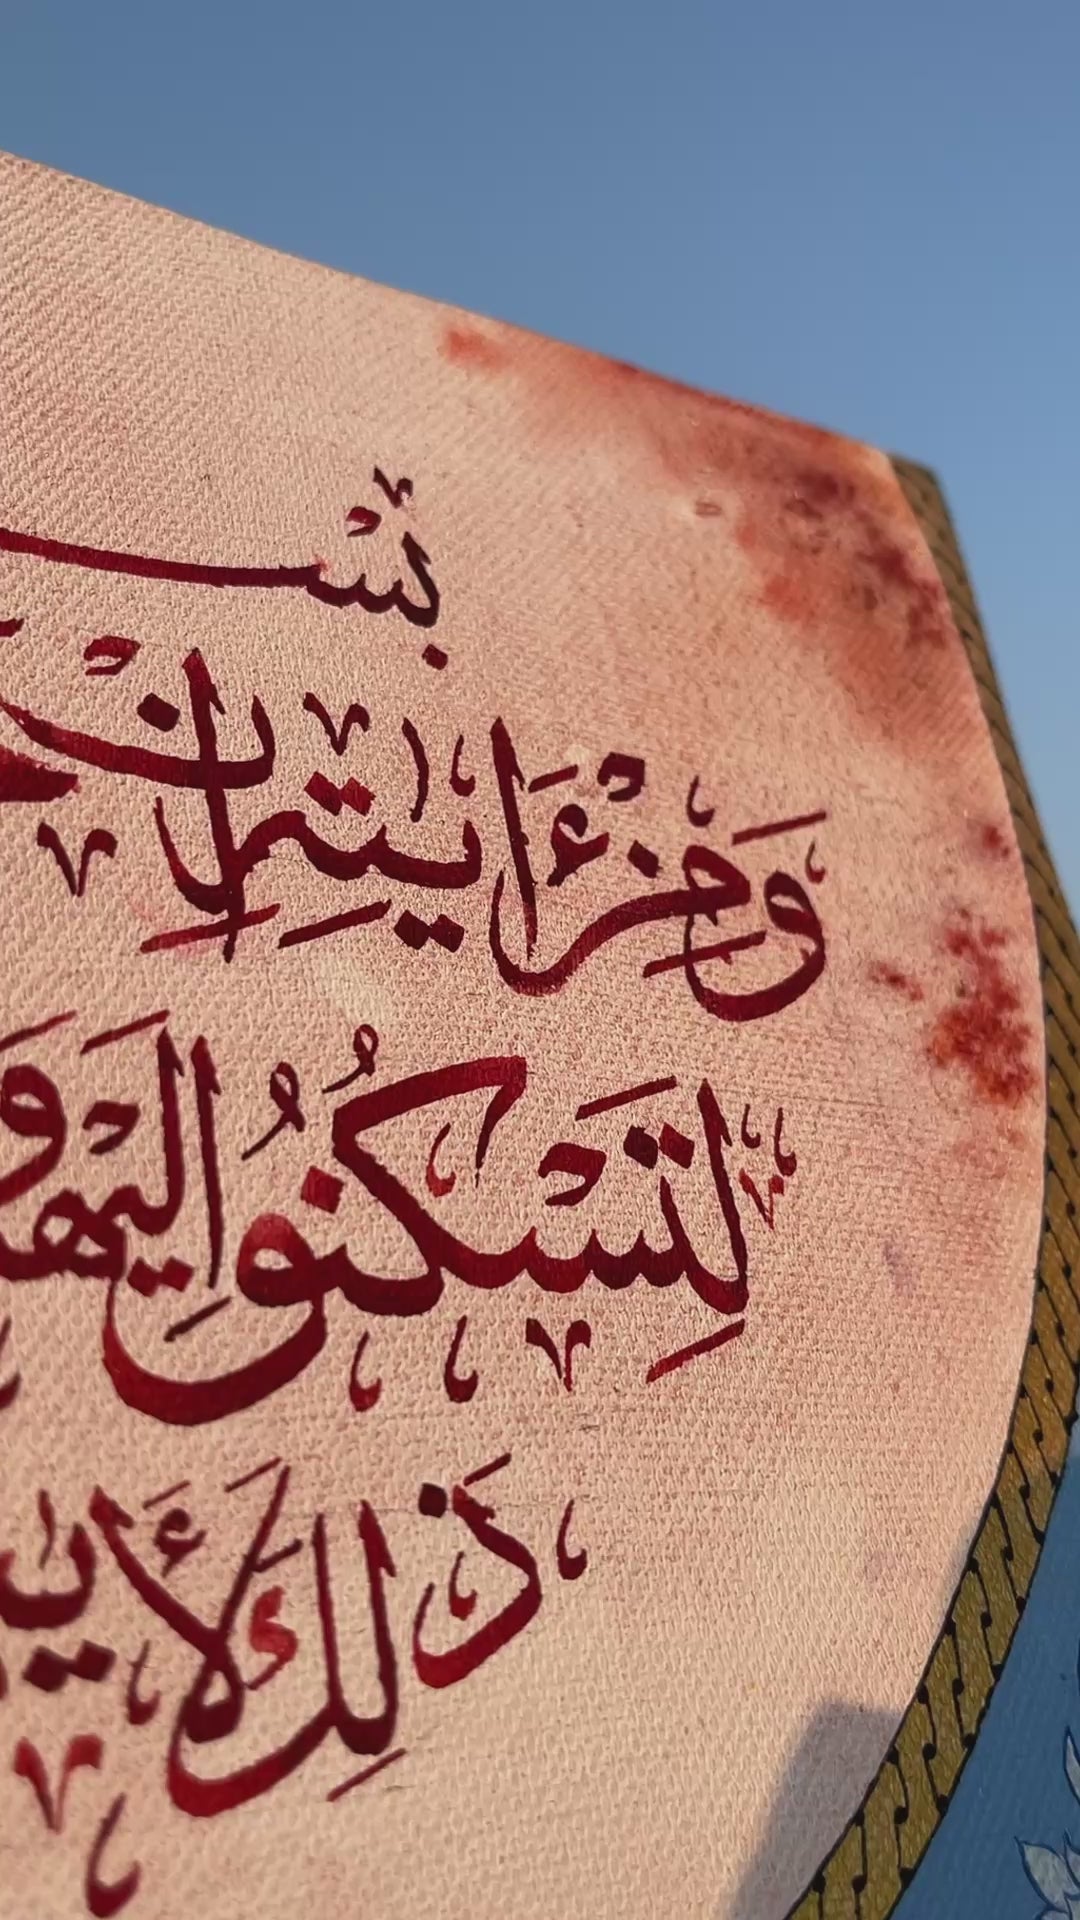 بِسْـ
وَمِنْ ءَايَٰتِهِۦٓ أَنْ
لِّتَسْكُنُوٓا۟ إِلَيْهَا وَ
ذَٰلِكَ لَأٓيَٰ